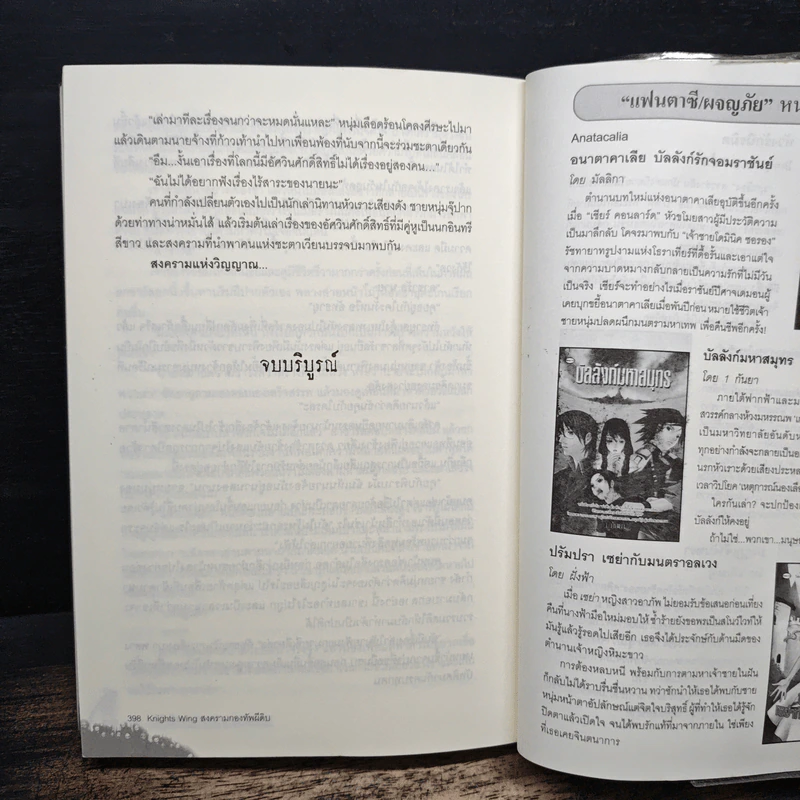 “เล่ามาทีละเรื่องจนกว่าจะหมดนั่นแหละ” หนุ่มเลือดร้อนโคลงศีรษะไปมา
แล้วเดินตามนายจ้างที่ก้าวเท้านำไปหาเพื่อนพ้องที่นับจากนี้จะร่วมชะตาเดียวกัน
“อืม...งั้นเอาเรื่องที่โลกนี้มีอัศวินศักดิ์สิทธิ์ไม่ได้เรื่องอยู่สองคน...”
“ฉันไม่ได้อยากฟังเรื่องไร้สาระของนายนะ”
คนที่กำลังเปลี่ยนตัวเองไปเป็นนักเล่านิทานหัวเราะเสียงดัง ชายหนุ่มจุ๊ปาก
ด้วยท่าทางน่าหมั่นไส้ แล้วเริ่มต้นเล่าเรื่องของอัศวินศักดิ์สิทธิ์ที่มีคู่หูเป็นนกอินทรี
สีขาว และสงครามที่นำพาคนแห่งชะตาเวียนบรรจบมาพบกัน
สงครามแห่งวิญญาณ...
จบบริบูรณ์
398 Knights Wing สงครามกองทัพผีดิบ
“แฟนตาซี/ผจญภัย”
Anatacalia
อนาตาคาเลีย บัลลังก์รักจอมราชันย์
โดย มัลลิกา
ตำนานบทใหม่แห่งอนาตาคาเลียอุบัติขึ้นอีกครั้ง
เมื่อ “เซียร์ คอนลาร์ด” หัวขโมยสาวผู้มีประวัติความ
เป็นมาลึกลับ โคจรมาพบกับ “เจ้าชายโดมินิค ซอรอง”
รัชทายาทรูปงามแห่งโธราเทียร์ที่ดื้อรั้นและเอาแต่ใจ
จากความบาดหมางกลับกลายเป็นความรักที่ไม่มีวัน
เป็นจริง เซียร์จะทำอย่างไรเมื่อราชันย์ปีศาจเตมอนผู้
เคยบุกขยี้อนาตาคาเลียเมื่อพันปีก่อน หมายใช้ชีวิตเจ้า
ชายหนุ่มปลดผนึกมนตรามหาเทพ เพื่อคืนชีพอีกครั้ง!
บัลลังก์มหาสมุทร
บัลลังก์มหาสมุทร
โดย 1 กันยา
ภายใต้ฟากฟ้าและม
สวรรค์กลางห้วงมหรรณพ
เป็นมหาวิทยาลัยอันดับห
ทุกอย่างกำลังจะกลายเป็นอ
นรกหัวเราะด้วยเสียงประหล
เวลาวิปโยค ‘เหตุการณ์นองเลือ
ใครกันเล่า? จะปกป้อง
บัลลังก์ให้คงอยู่
ถ้าไม่ใช่...พวกเขา...มนุษ
ปรัมปรา เซย่ากับมนตราอลเวง
โดย ฝั่งฟ้า
เมื่อ เซย่า หญิงสาวอาภัพ ไม่ยอมรับข้อเสนอก่อนเที่ยง
คืนที่นางฟ้ามือใหม่มอบให้ ซ้ำร้ายยังขอพรเป็นสโนว์ไวท์ให้
มันรู้แล้วรู้รอดไปเสียอีก เธอจึงได้ประจักษ์กับด้านมืดของ
ตำนานเจ้าหญิงหิมะขาว
การต้องหลบหนี พร้อมกับการตามหาเจ้าชายในฝัน
ก็กลับไม่ได้ราบรื่นชื่นหวาน ทว่าชักนำให้เธอได้พบกับชาย
หนุ่มหน้าตาอัปลักษณ์แต่จิตใจบริสุทธิ์ ผู้ที่ทำให้เธอได้รู้จัก
ปิดตาแล้วเปิดใจ จนได้พบรักแท้ที่มาจากภายใน ใช่เพียง
ที่เธอเคยจินตนาการ